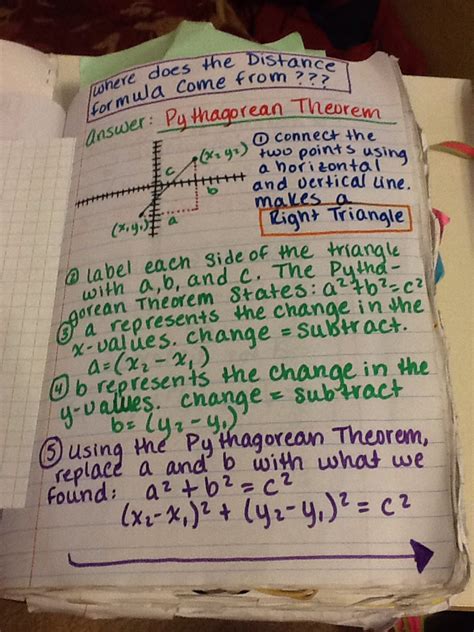 Where does the Distance
formula come from???
answer: Pythagorean Theorem
① connect the
two points using
a horizontal
and vertical line.
makes a
Right Triangle
(x₂ y₂)
c
b
a
(x₁,y₁)
② label each side of the triangle
with a, b, and c. The Pytha-
gorean Theorem States: a²+b²=c²
③ a represents the change in the
x-values. change = subtract.
a=(x₂-x₁)
④ b represents the change in the
y-values. change = subtract
b=(y₂-y₁)
⑤ using the Pythagorean Theorem,
replace a and b with what we
found: a²+b²=c²
(x₂-x₁)²+(y₂-y₁)²=c²